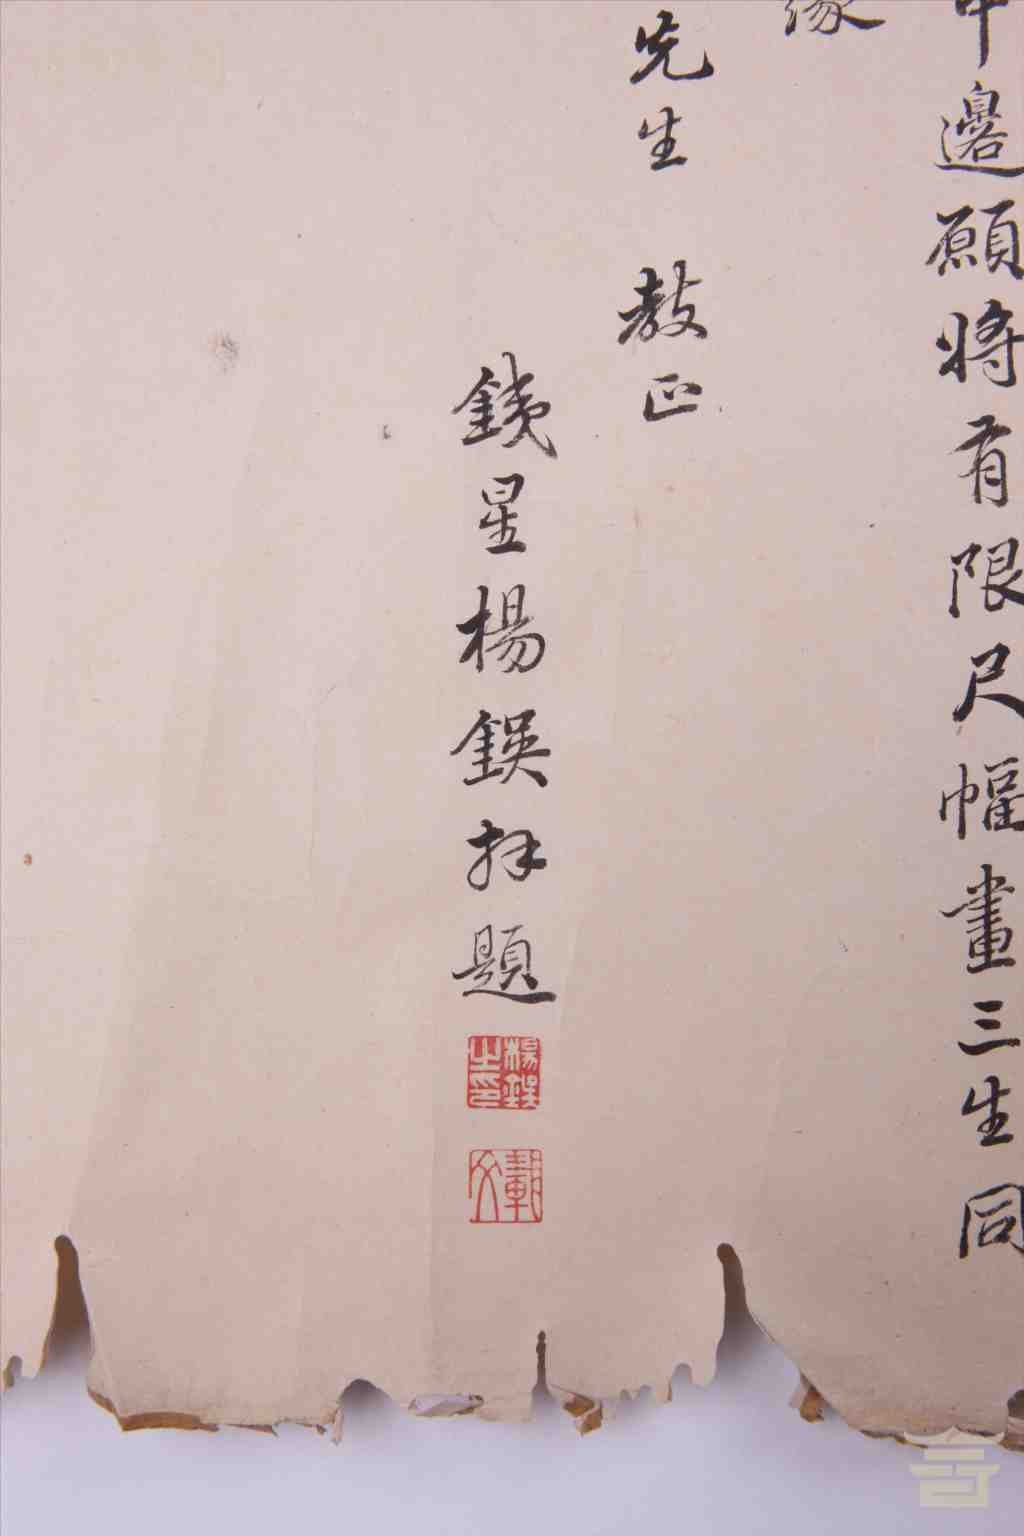 中邊願將有限尺幅畫三生同
緣
先生 教正
銕星楊拜題
楊之印
文